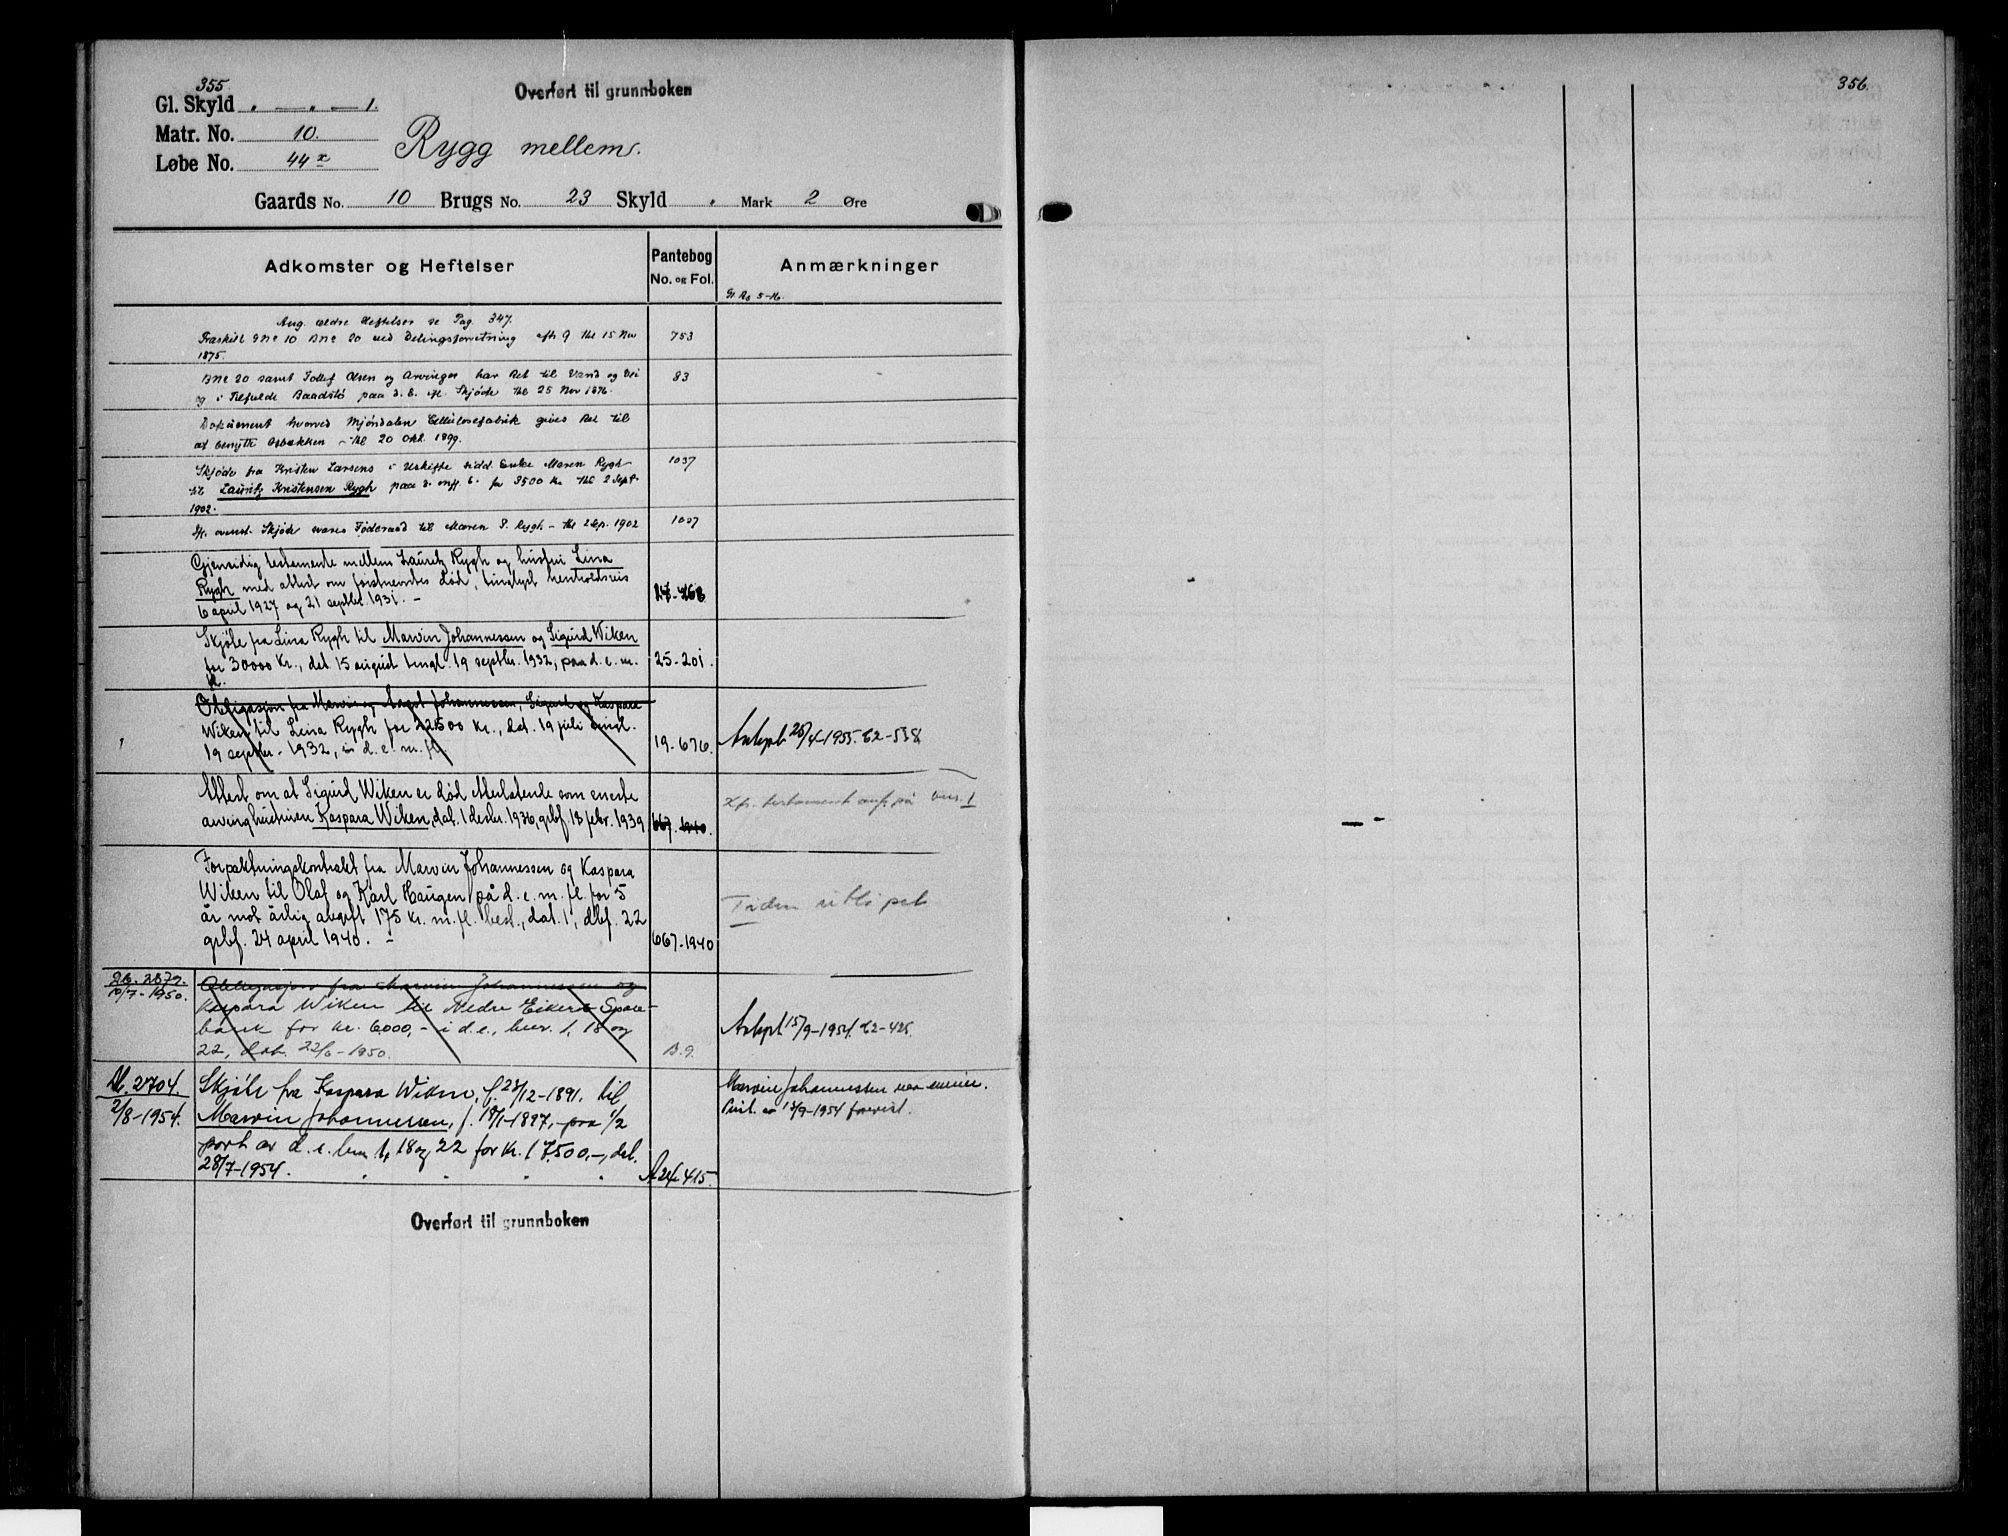 355
Overført til grunnboken
Gl. Skyld " — " — 1.
Matr. No. 10.
Løbe No. 44 x
Rygg mellem.
Gaards No. 10 Brugs No. 23 Skyld . Mark 2 Øre
Adkomster og Heftelser
Pantebog
No. og Fol.
Anmærkninger
Ang. ældre Heftelser se Pag. 347.
Fraskilt GNo 10 BNo 20 ved Delingsforretning afh. 9 thl 15 Nov
1875.
753
BNo 20 samt Tollef Olsen og Arvinger har Ret til Vand og Vei
og i Tilfælde Baadstø paa d. E. ifl. Skjøde thl 25 Nov 1876.
83
Dokument hvorved Mjøndalen Cellulosefabrik gives Ret til
at benytte Bækken – thl 20 Okt. 1899.
Skjøde fra Kristen Larsens i Uskifte sidd. Enke Maren Rygh
til Lauritz Kristensen Rygh paa d. m. fl. E. for 3500 Kr. thl 2 Sept.
1902.
1037
Ifl. ovenst. Skjøde svares Føderaad til Maren P. Rygh – thl 2 Sep. 1902
1037
Gjensidig testamente mellem Lauritz Rygh og hustru Lina
Rygh med attest om førstnevntes død, tinglyst henholdsvis
6 april 1927 og 21 septbr. 1931. –
17-268
Skjøte fra Lina Rygh til Marvin Johannessen og Sigurd Wiken
for 30000 Kr., dat. 15 august tingl. 19 septbr. 1932, paa d. e. m.
fl.
25-201.
Obligasjon fra Marvin og Aagot Johannessen, Sigurd og Kaspara
Wiken til Lina Rygh for 22500 kr., dat. 19 juli tingl.
19 septbr. 1932, i d. e. m. fl.
19-676.
Avlyst 25/4-1955. 62-538
Attest om at Sigurd Wiken er død efterlatende som eneste
arving hustruen Kaspara Wiken, dat. 1 desbr. 1936, grbf. 18 febr. 1939
667-1940.
testament anf. på bnr. 1
Forpaktningskontrakt fra Marvin Johannessen og Kaspara
Wiken til Olaf og Karl Haugen på d. e. m. fl. for 5
år mot årlig avgift 175 kr. m. fl. best., dat. 1, dbf. 22
grbf. 24 april 1940. –
667-1940
Tiden utløpet
26. 2872.
10/7-1950.
Obligasjon fra Marvin Johannessen og
Kaspara Wiken til Nedre Eiker Spare-
bank for kr. 6000,- i d. e., bnr. 1, 18 og
22, dat. 22/6-1950.
B.9.
Avlyst 15/9-1954. 62-425
2704.
2/8-1954.
Skjøte fra Kaspara Wiken, f. 25/12-1891. til
Marvin Johannessen, f. 18/1-1897, paa 1/2
part av d. e. bnr 1, 18 og 22 for kr. 17.500,-, dat.
28/7-1954.
A24-415.
Marvin Johannessen
13/9-1954 forevist.
Overført til grunnboken
356.